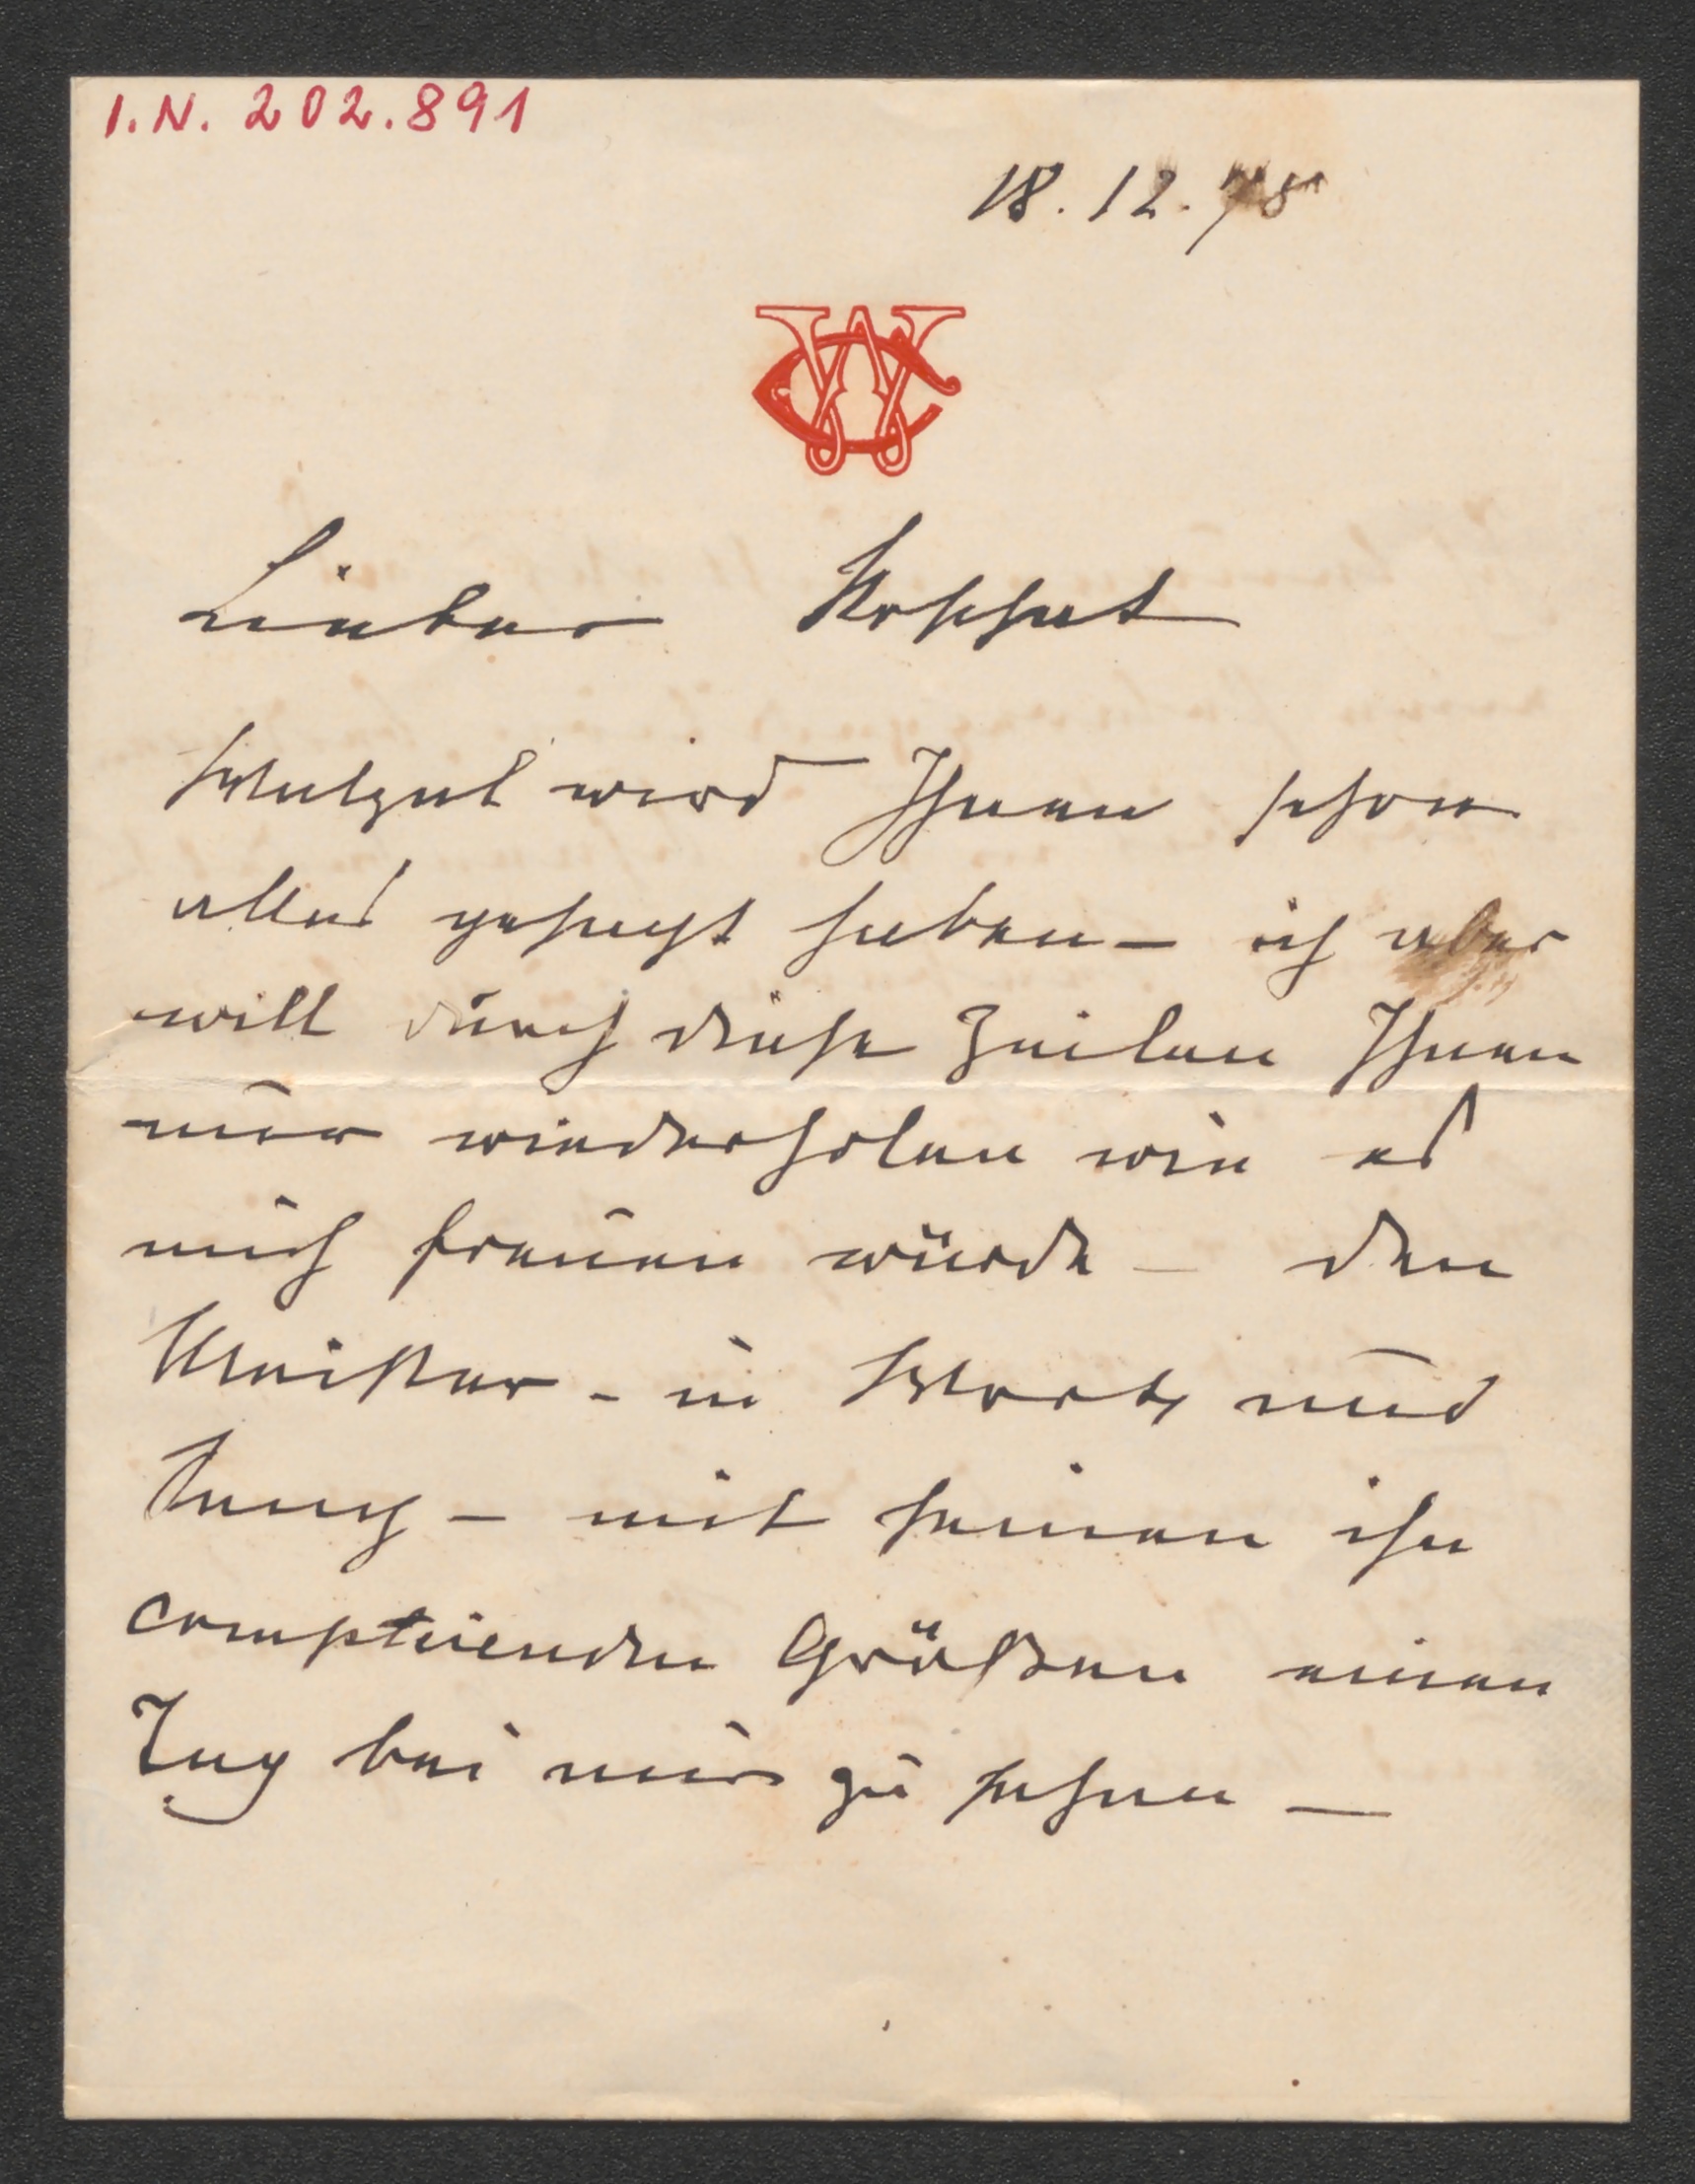 I.N. 202.891
18. 12. 78
CW
Lieber
wird Ihnen schon
alles gesagt haben – ich aber
will durch diese Zeilen Ihnen
nur wiederholen wie es
mich freuen würde – den
Meister - in Wort und
Sang – mit seinen ihn
Größen einen
Tag bei mir zu sehen –